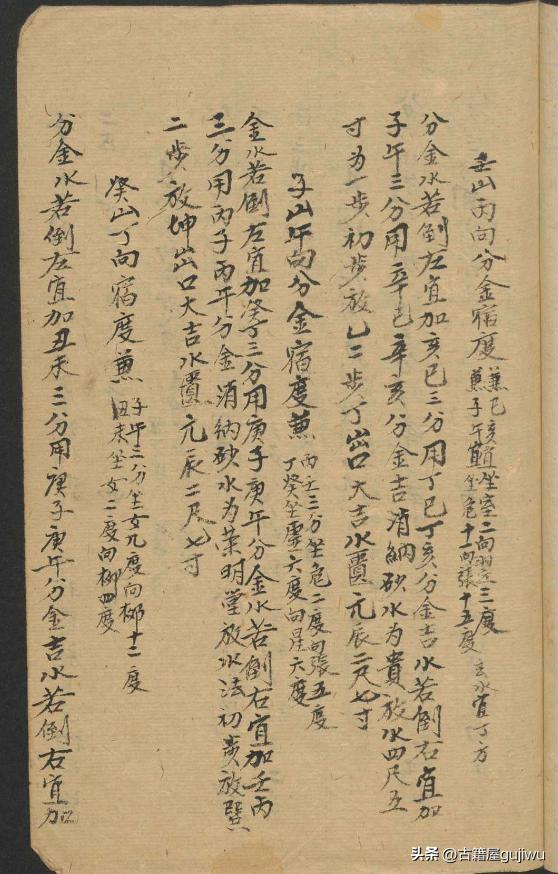 壬山丙向分金宿度兼巳亥直坐室二向翌三度
兼子午直坐危十一向張十五度 去水宜丁方
分金水若倒左宜加亥巳三分用丁巳丁亥分金吉水若倒右宜加
子午三分用辛巳辛亥分金吉消納砂水为貴放水四尺五
寸为一步初步放乙二步丁出口大吉水置元辰二尺七寸
子山午向分金宿度兼丙壬三分坐危二度向張五度
丁癸坐虛六度向星六度
金水若倒左宜加癸丁三分用庚子庚午分金水若倒右宜加壬丙
三分用丙子丙午分金消納砂水为荣明堂放水法初步放巽
二步放坤出口大吉水置元辰二尺七寸
癸山丁向宿度兼子午三分坐女九度向柳十二度
丑未坐女二度向柳四度
分金水若倒左宜加丑未三分用庚子庚午分金吉水若倒右宜加
头条 @古籍屋gujiwu